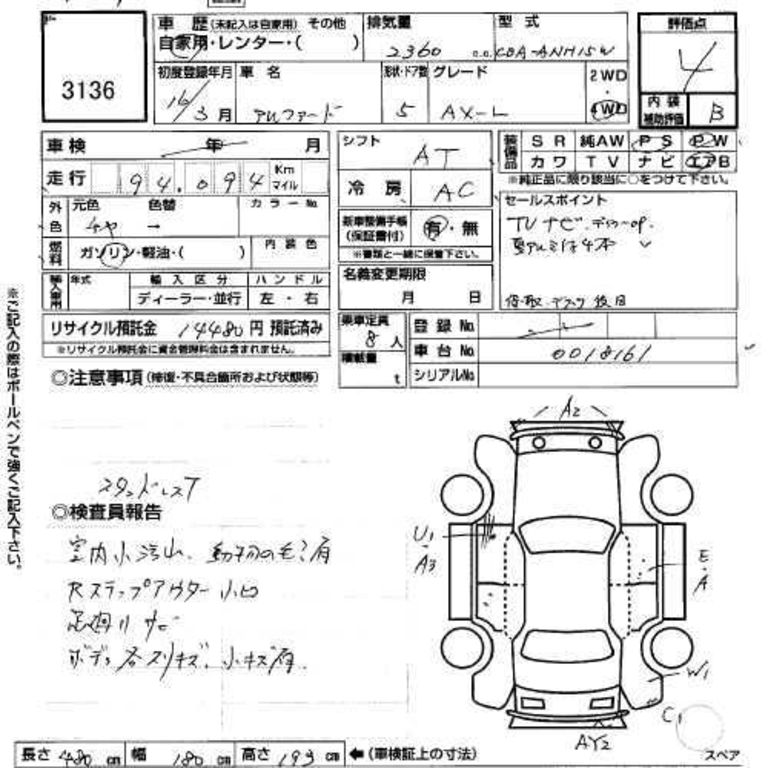 3136
車歴 (未記入は自家用) その他
自家用・レンター・( )
排気量
2360 c.c.
型式
CBA-ANH15W
評価点
4
内装補助評価
B
初度登録年月
16/3月
車名
アルファード
形状・ドア数
5
グレード
AX-L
2WD
・
4WD
車検 年 月
走行 94.094 Km マイル
シフト
AT
冷房
AC
装備品
SR 純AW PS PW
カワ TV ナビ エアB
※純正品に限り該当に○をつけて下さい。
外色
元色 色替 カラーNo
チャ →
燃料
ガソリン・軽油・( )
内装色
新車整備手帳
(保証書付)
有・無
※書類と一緒に保管下さい。
セールスポイント
TVナビ.デラーop.
夏アルミは4本
輸入車用
年式
輸入区分
ディーラー・並行
ハンドル
左・右
名義変更期限
月 日
リサイクル預託金 14480円 預託済み
※リサイクル預託金に資金管理料金は含まれません。
乗車定員
8人
積載量
t
登録No.
車台No. 0018161
シリアルNo.
◎注意事項 (修復・不具合箇所および状態等)
※ご記入の際はボールペンで強くご記入下さい。
スタッドレスT
◎検査員報告
室内小汚れ、動物の毛?有
Rステップアウター小凹
足廻りサビ
ボディ各スリキズ、小キズ有.
A2
U1
・
A3
E
・
A
W1
C1
AY2
スペア
長さ 480 cm 幅 180 cm 高さ 193 cm ←(車検証上の寸法)